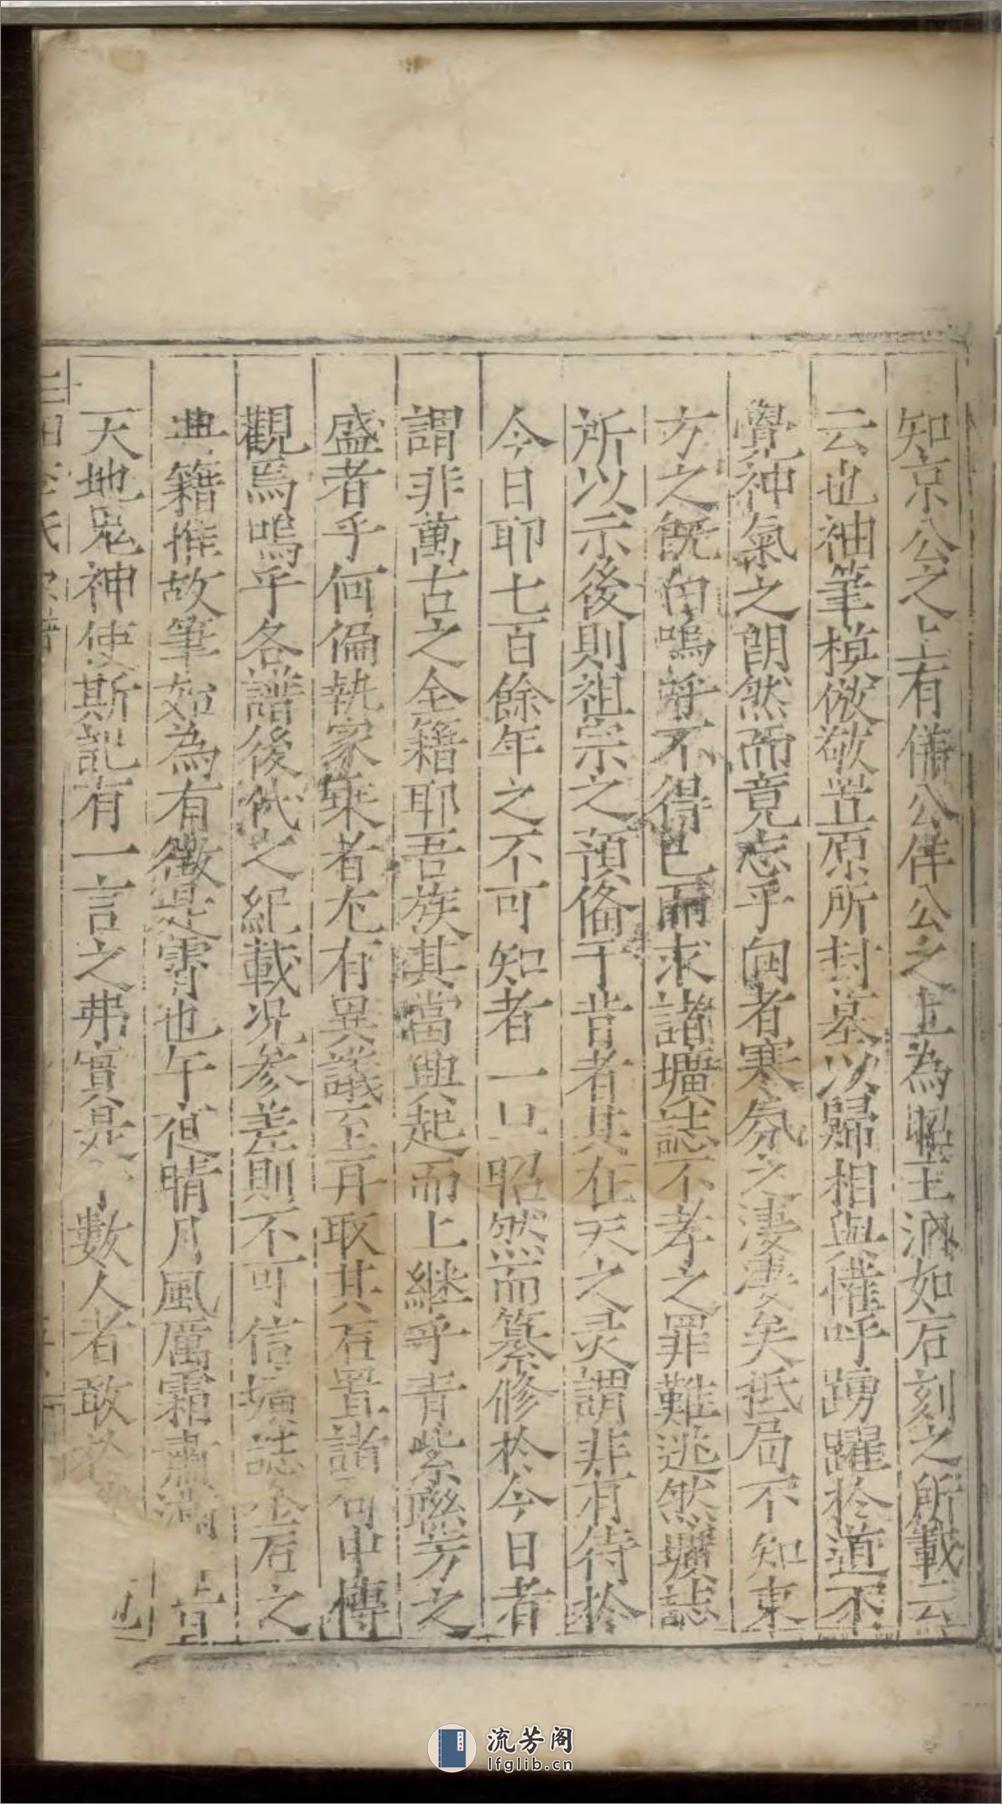 知京公之上有儀公佯公之上為昭王派如石刻之所載云
云也袖筆模倣敬置原所封墓以歸相與懽呼踴躍於道不
覺神氣之朗然而竟忘乎向者寒氛之淒淒矣抵局不知東
方之旣白嗚呼不得已而求諸壙誌不孝之罪難逃然壙誌
所以示後則祖宗之預俻于昔者其在天之灵謂非有待於
今日耶七百餘年之不可知者一旦昭然而纂修於今日者
謂非萬古之全籍耶吾族其當興起而上継乎青紫聮芳之
盛者乎何偏執家乗者尤有異議至再取其石置諸祠中傳
觀焉嗚乎各譜後代之紀載况參差則不可信壙誌金石之
典籍推故筆如為有徵是霄也午夜晴月風厲霜肅滿
天地鬼神使斯記有一言之弗實是 數人者敢於
三田李氏宗譜
流芳阁
lfglib.cn